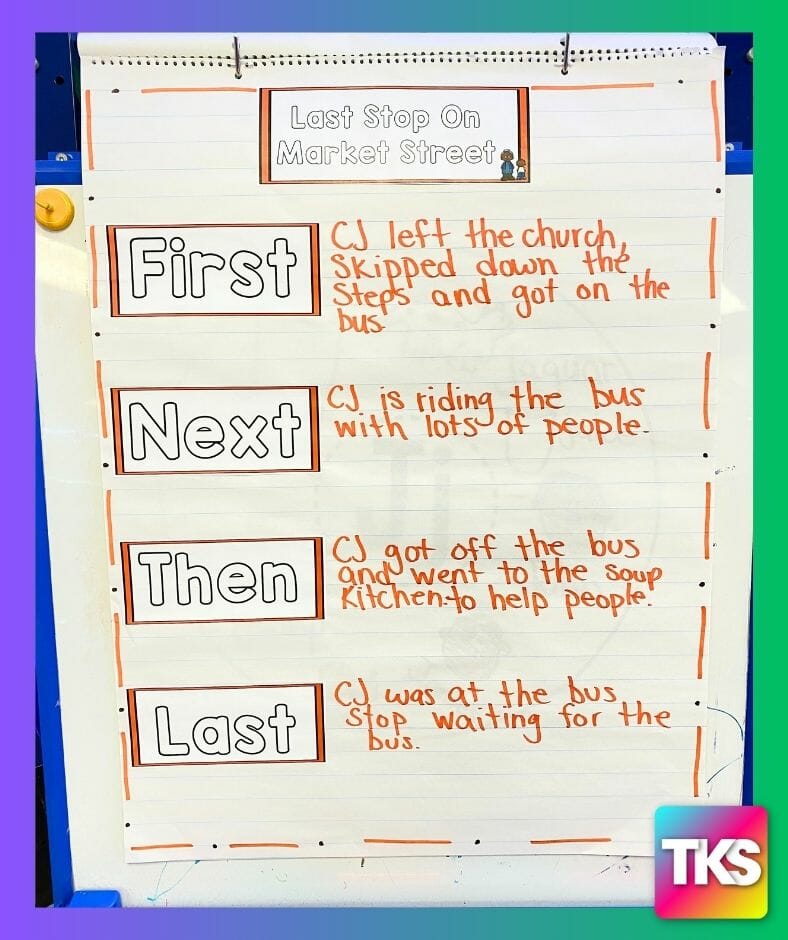 Last Stop On
Market Street
First
CJ left the church,
skipped down the
steps and got on the
bus.
Next
CJ is riding the bus
with lots of people.
Then
CJ got off the bus
and went to the soup
kitchen to help people.
Last
CJ was at the bus
stop waiting for the
bus.
TKS